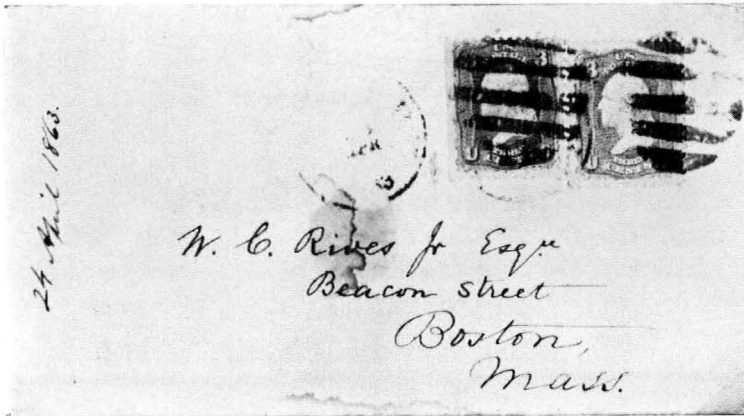 24 April 1863.
3 3
APR
U
U
W. C. Rives Jr Esqre
Beacon Street
Boston,
Mass.